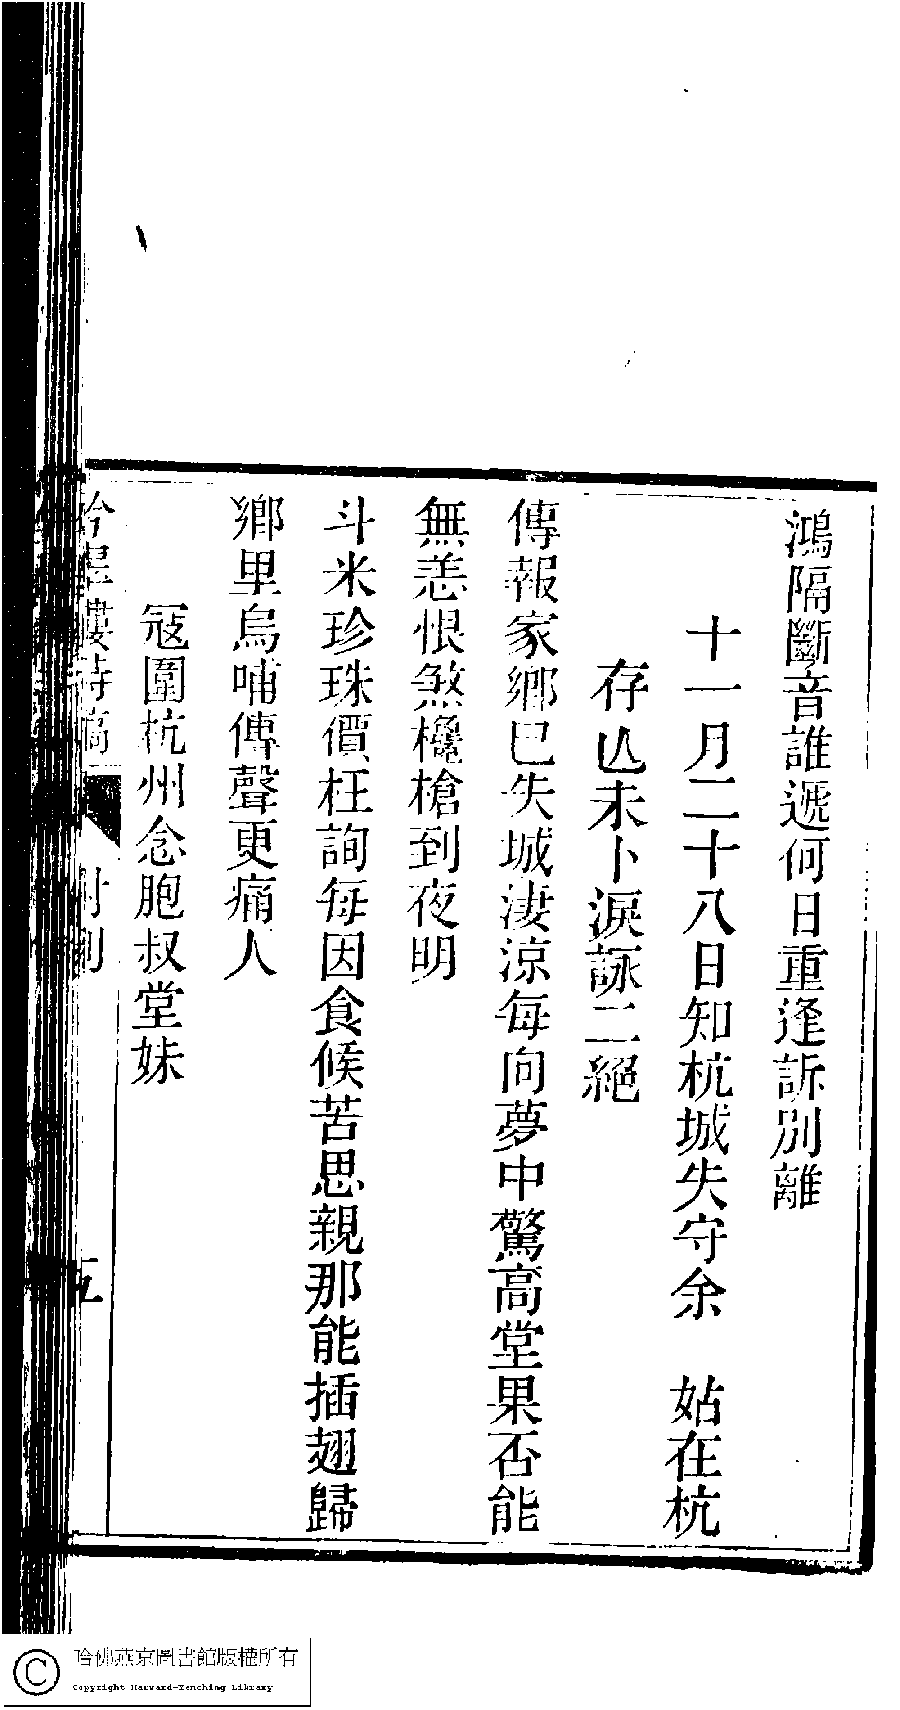 鴻隔斷音誰遞何日重逢訴別離
十一月二十八日知杭城失守余　姑在杭
存亾未卜淚詠二絕
傳報家鄉巳失城淒涼每向夢中驚高堂果否能
無恙恨煞欃槍到夜明
斗米珍珠價枉詢每因食候苦思親那能插翅歸
鄉里烏哺傳聲更痛人
寇圍杭州念胞叔堂妹
樓詩稿
附刊
五
哈佛燕京圖書館版權所有
Copyright Harvard-Yenching Library